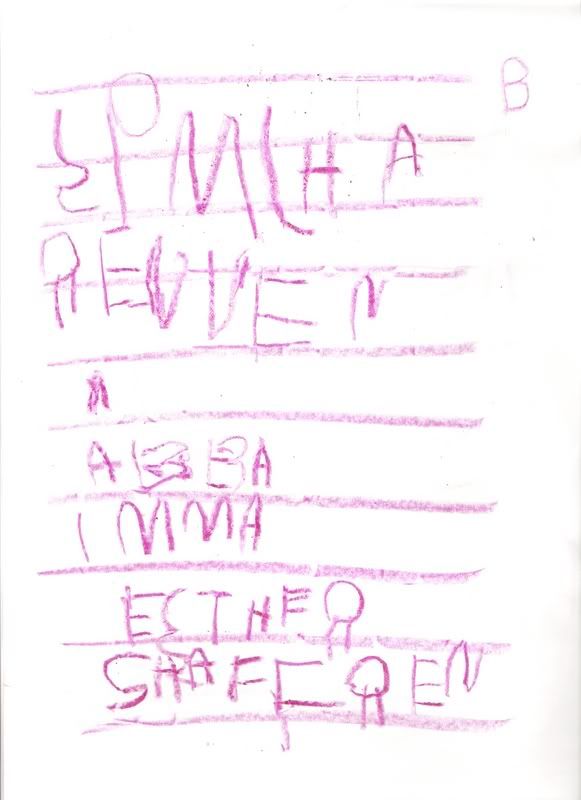 B
SIMCHA
REUVEN
A
ABBA
IMMA
ESTHER
SHAFEREN